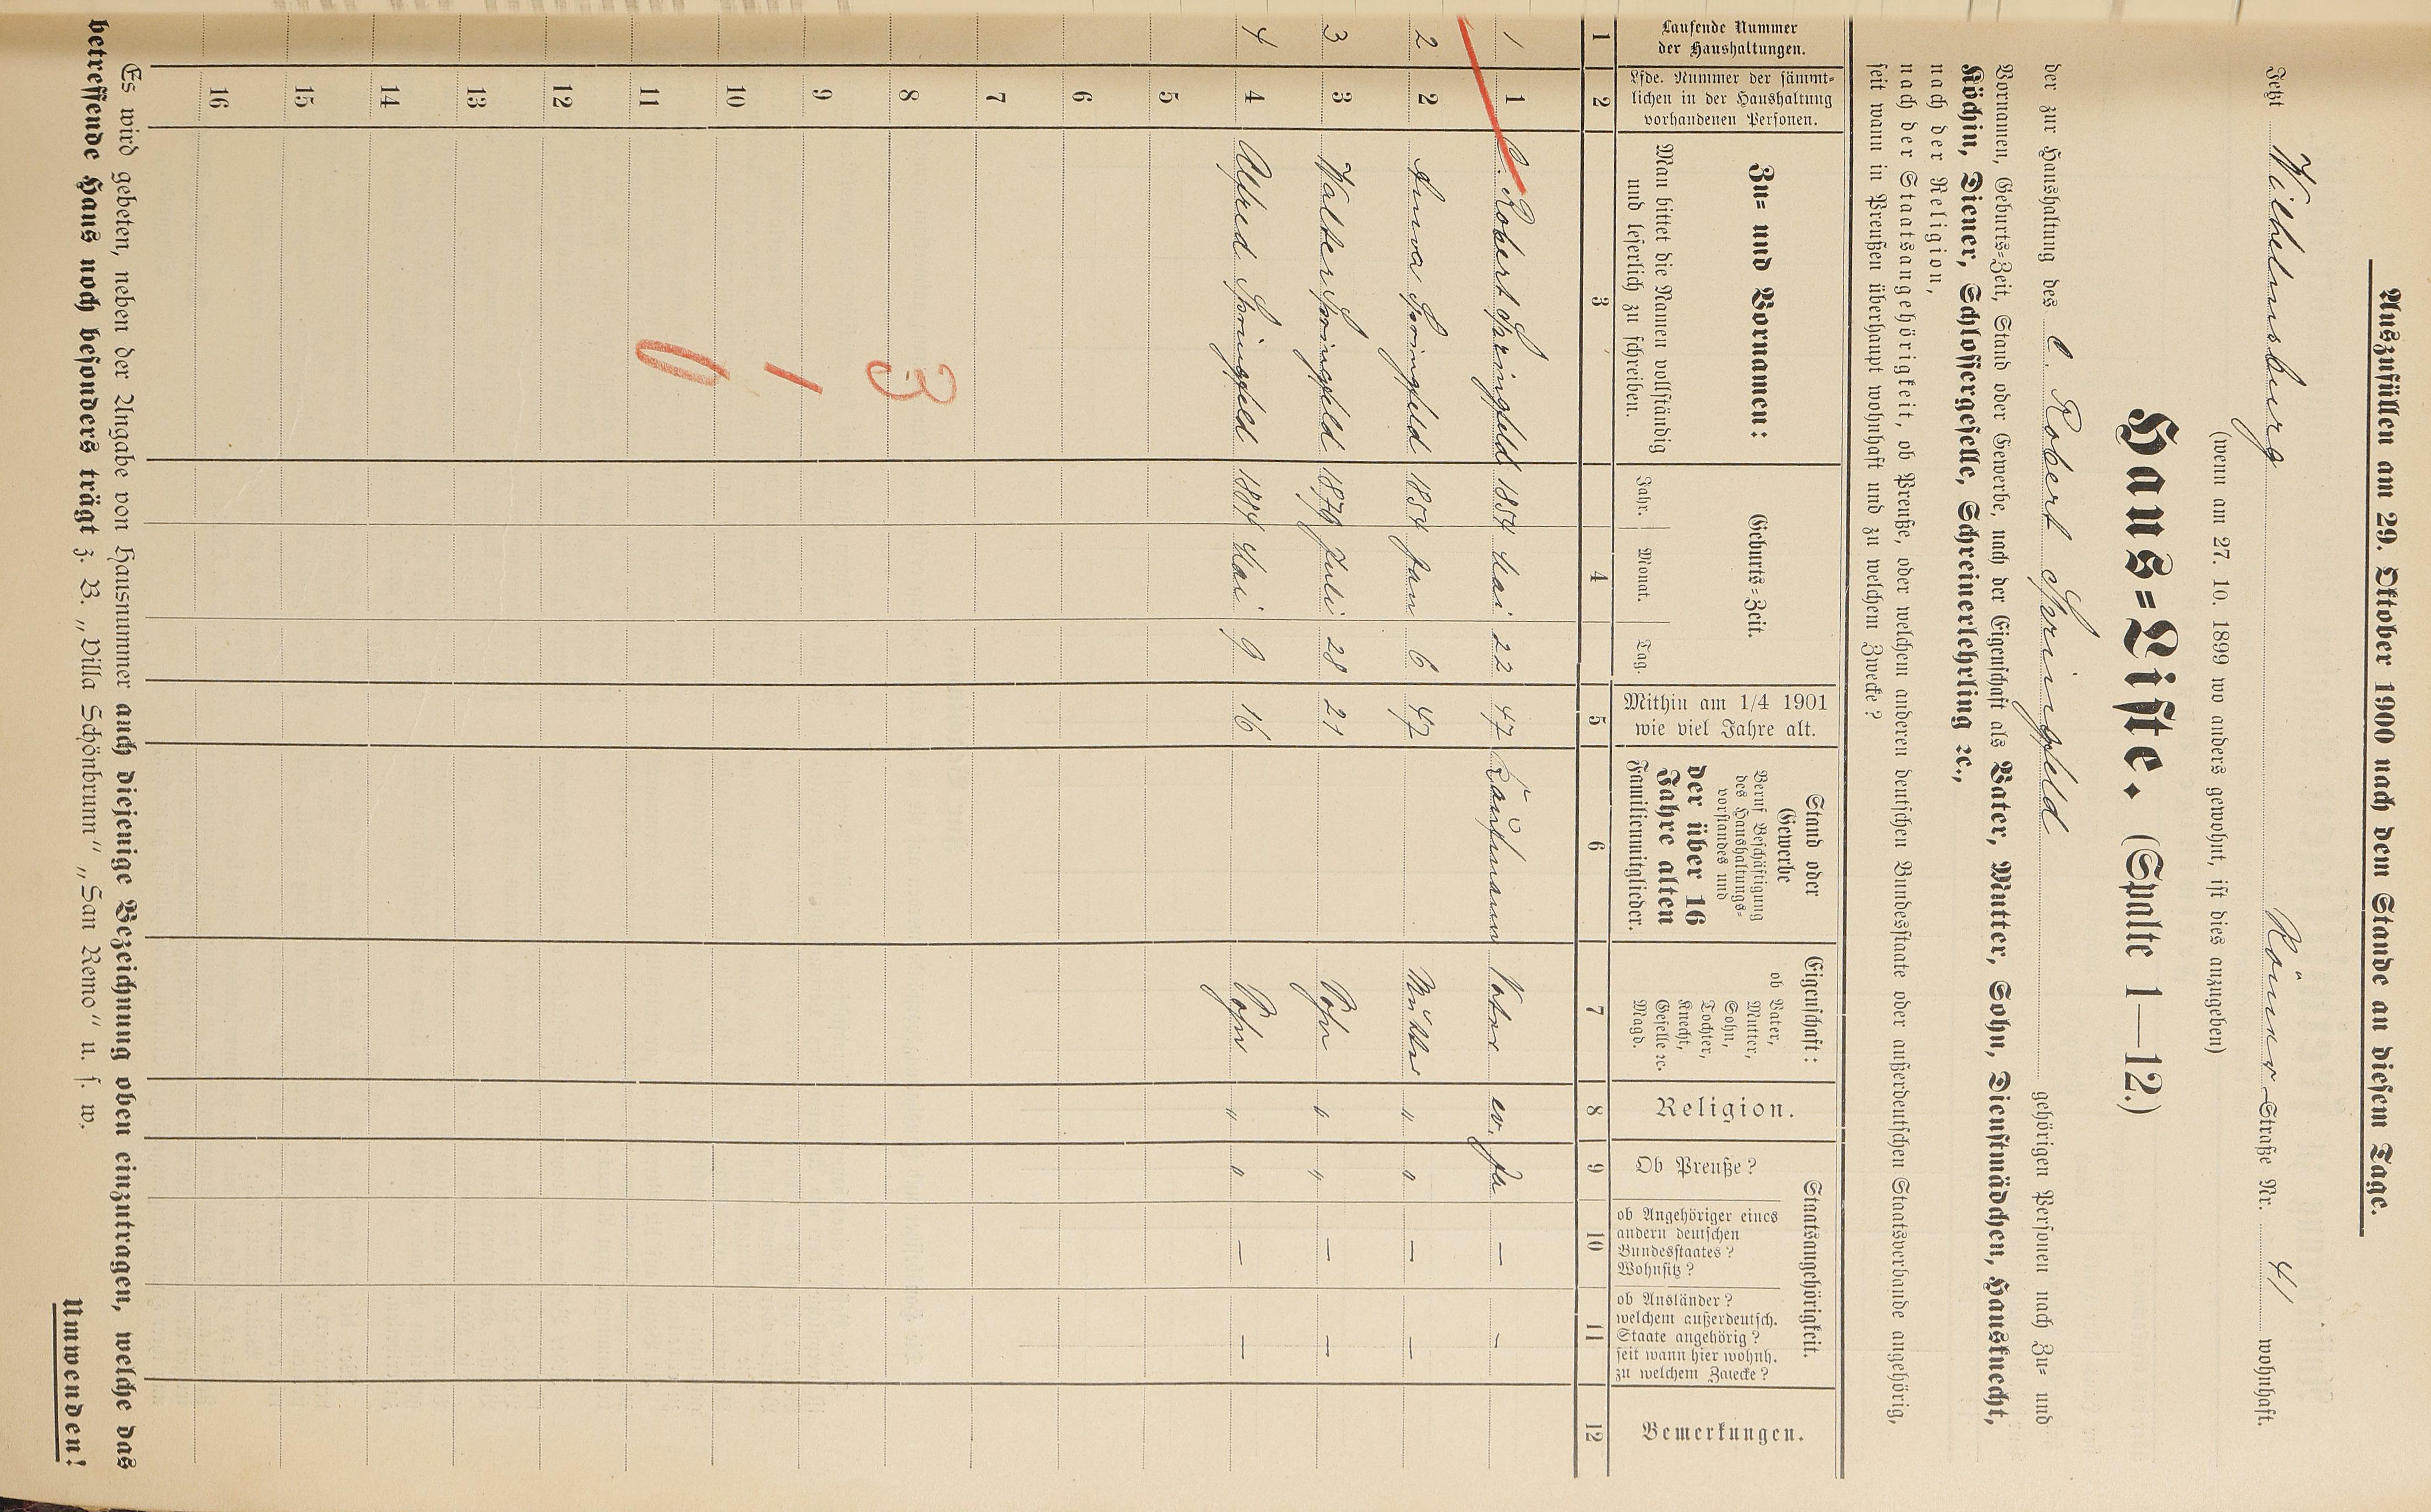 Auszufüllen am 29. Oktober 1900 nach dem Stande an diesem Tage.
Jetzt Wilhelmsburg Röner-Straße Nr. 41 wohnhaft.
(wenn am 27. 10. 1899 wo anders gewohnt, ist dies anzugeben)
Haus=Liste. (Spalte 1—12.)
der zur Haushaltung des C. Robert Springfeld gehörigen Personen nach Zu= und
Vornamen, Geburts=Zeit, Stand oder Gewerbe, nach der Eigenschaft als Vater, Mutter, Sohn, Dienstmädchen, Hausknecht,
Köchin, Diener, Schlossergeselle, Schreinerlehrling ꝛc.,
nach der Religion,
nach der Staatsangehörigkeit, ob Preuße, oder welchem anderen deutschen Bundesstaate oder außerdeutschen Staatsverbande angehörig,
seit wann in Preußen überhaupt wohnhaft und zu welchem Zwecke?
Laufende Nummer
der Haushaltungen.
Lfde. Nummer der sämmt=
lichen in der Haushaltung
vorhandenen Personen.
Zu= und Vornamen:
Man bittet die Namen vollständig
und leserlich zu schreiben.
Geburts=Zeit.
Jahr. Monat. Tag.
Mithin am 1/4 1901
wie viel Jahre alt.
Stand oder
Gewerbe
Beruf Beschäftigung
des Haushaltungs=
vorstandes und
der über 16
Jahre alten
Familienmitglieder.
Eigenschaft:
ob Vater,
Mutter,
Sohn,
Tochter,
Knecht,
Geselle ꝛc.
Magd.
Religion.
Staatsangehörigkeit.
Ob Preuße?
ob Angehöriger eines
andern deutschen
Bundesstaates?
Wohnsitz?
ob Ausländer?
welchem außerdeutsch.
Staate angehörig?
seit wann hier wohnh.
zu welchem Zwecke?
Bemerkungen.
1 2 3 4 5 6 7 8 9 10 11 12
1 1 C. Robert Springfeld 1854 Mai 22 47 Kaufmann Vater ev. Ja — —
2 2 Anna Springfeld 1854 Jan 6 47 Mutter " " — —
3 3 Walter Springfeld 1879 Juli 28 21 Sohn " " — —
4 4 Alfred Springfeld 1884 Mai 9 16 Sohn " " — —
5
6
7
8 3
9
10 1
11 0
12
13
14
15
16
Es wird gebeten, neben der Angabe von Hausnummer auch diejenige Bezeichnung oben einzutragen, welche das
betreffende Haus noch besonders trägt z. B. „Villa Schönbrunn" „San Remo" u. s. w.
Umwenden!